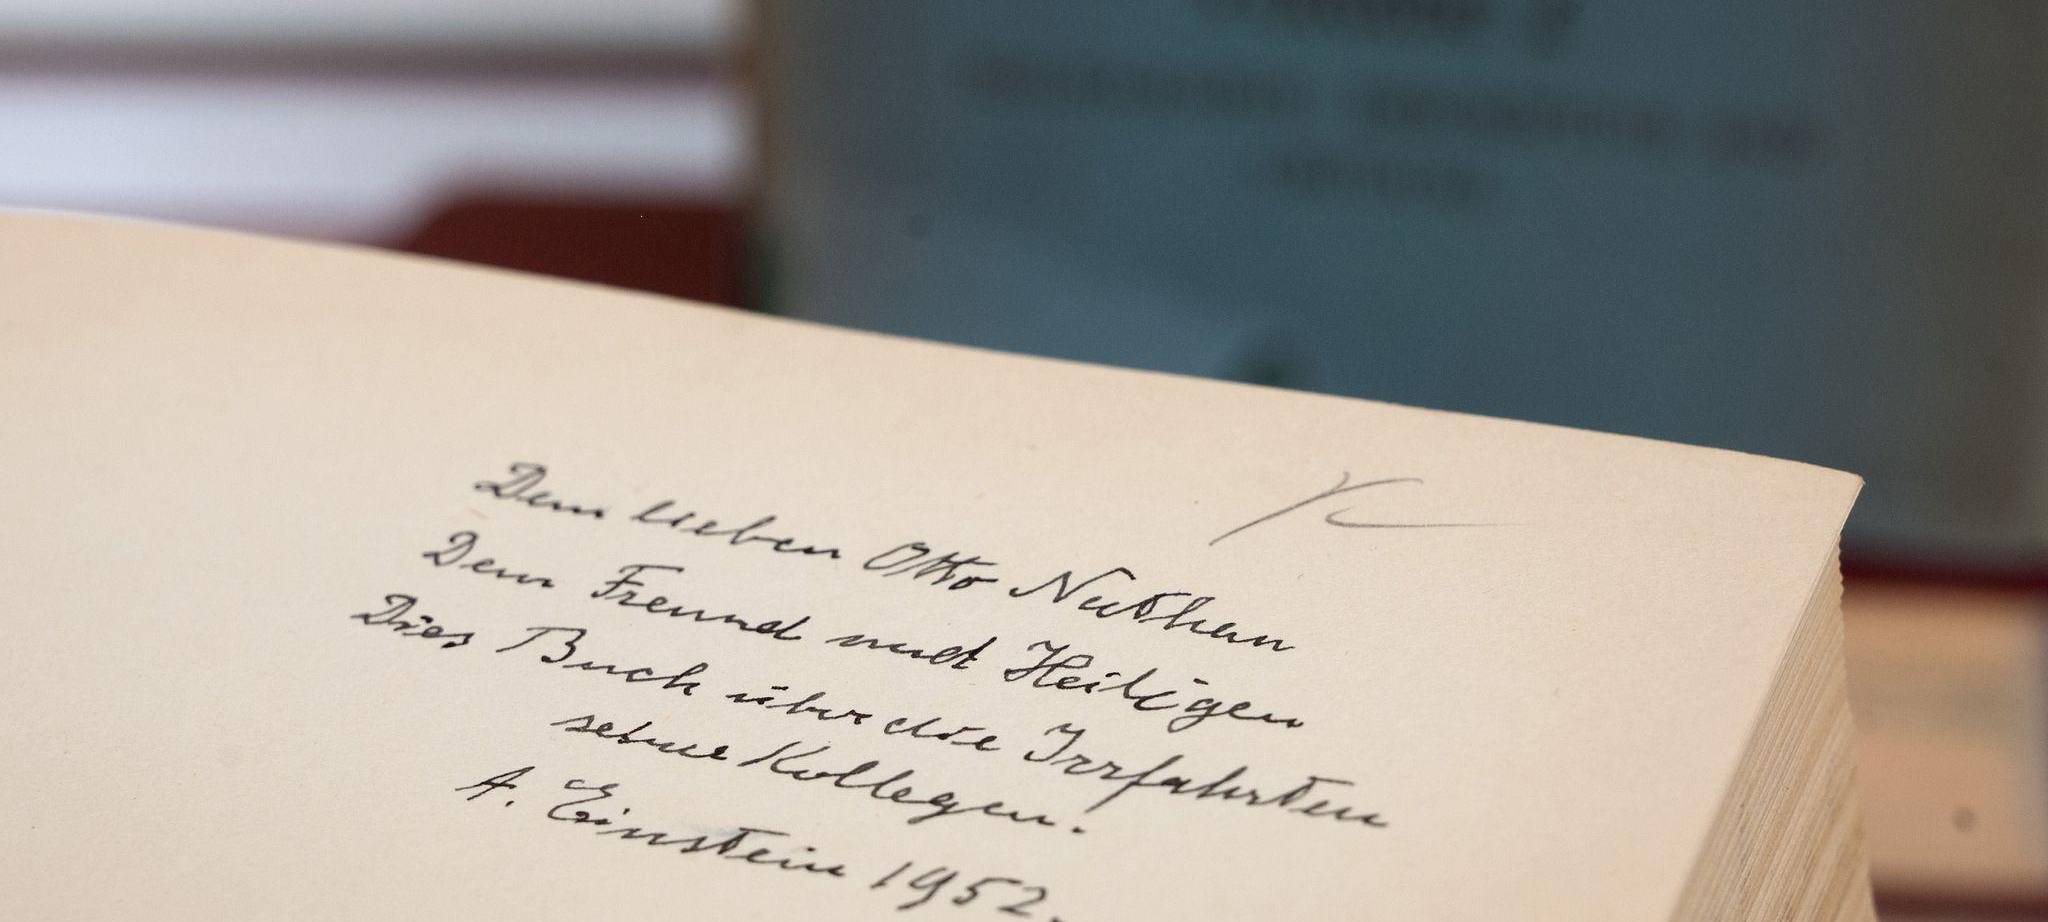 Dem lieben Otto Nathan
Dem Freund und Heiligen
Dies Buch über die Irrfahrten
seiner Kollegen.
A. Einstein 1952.